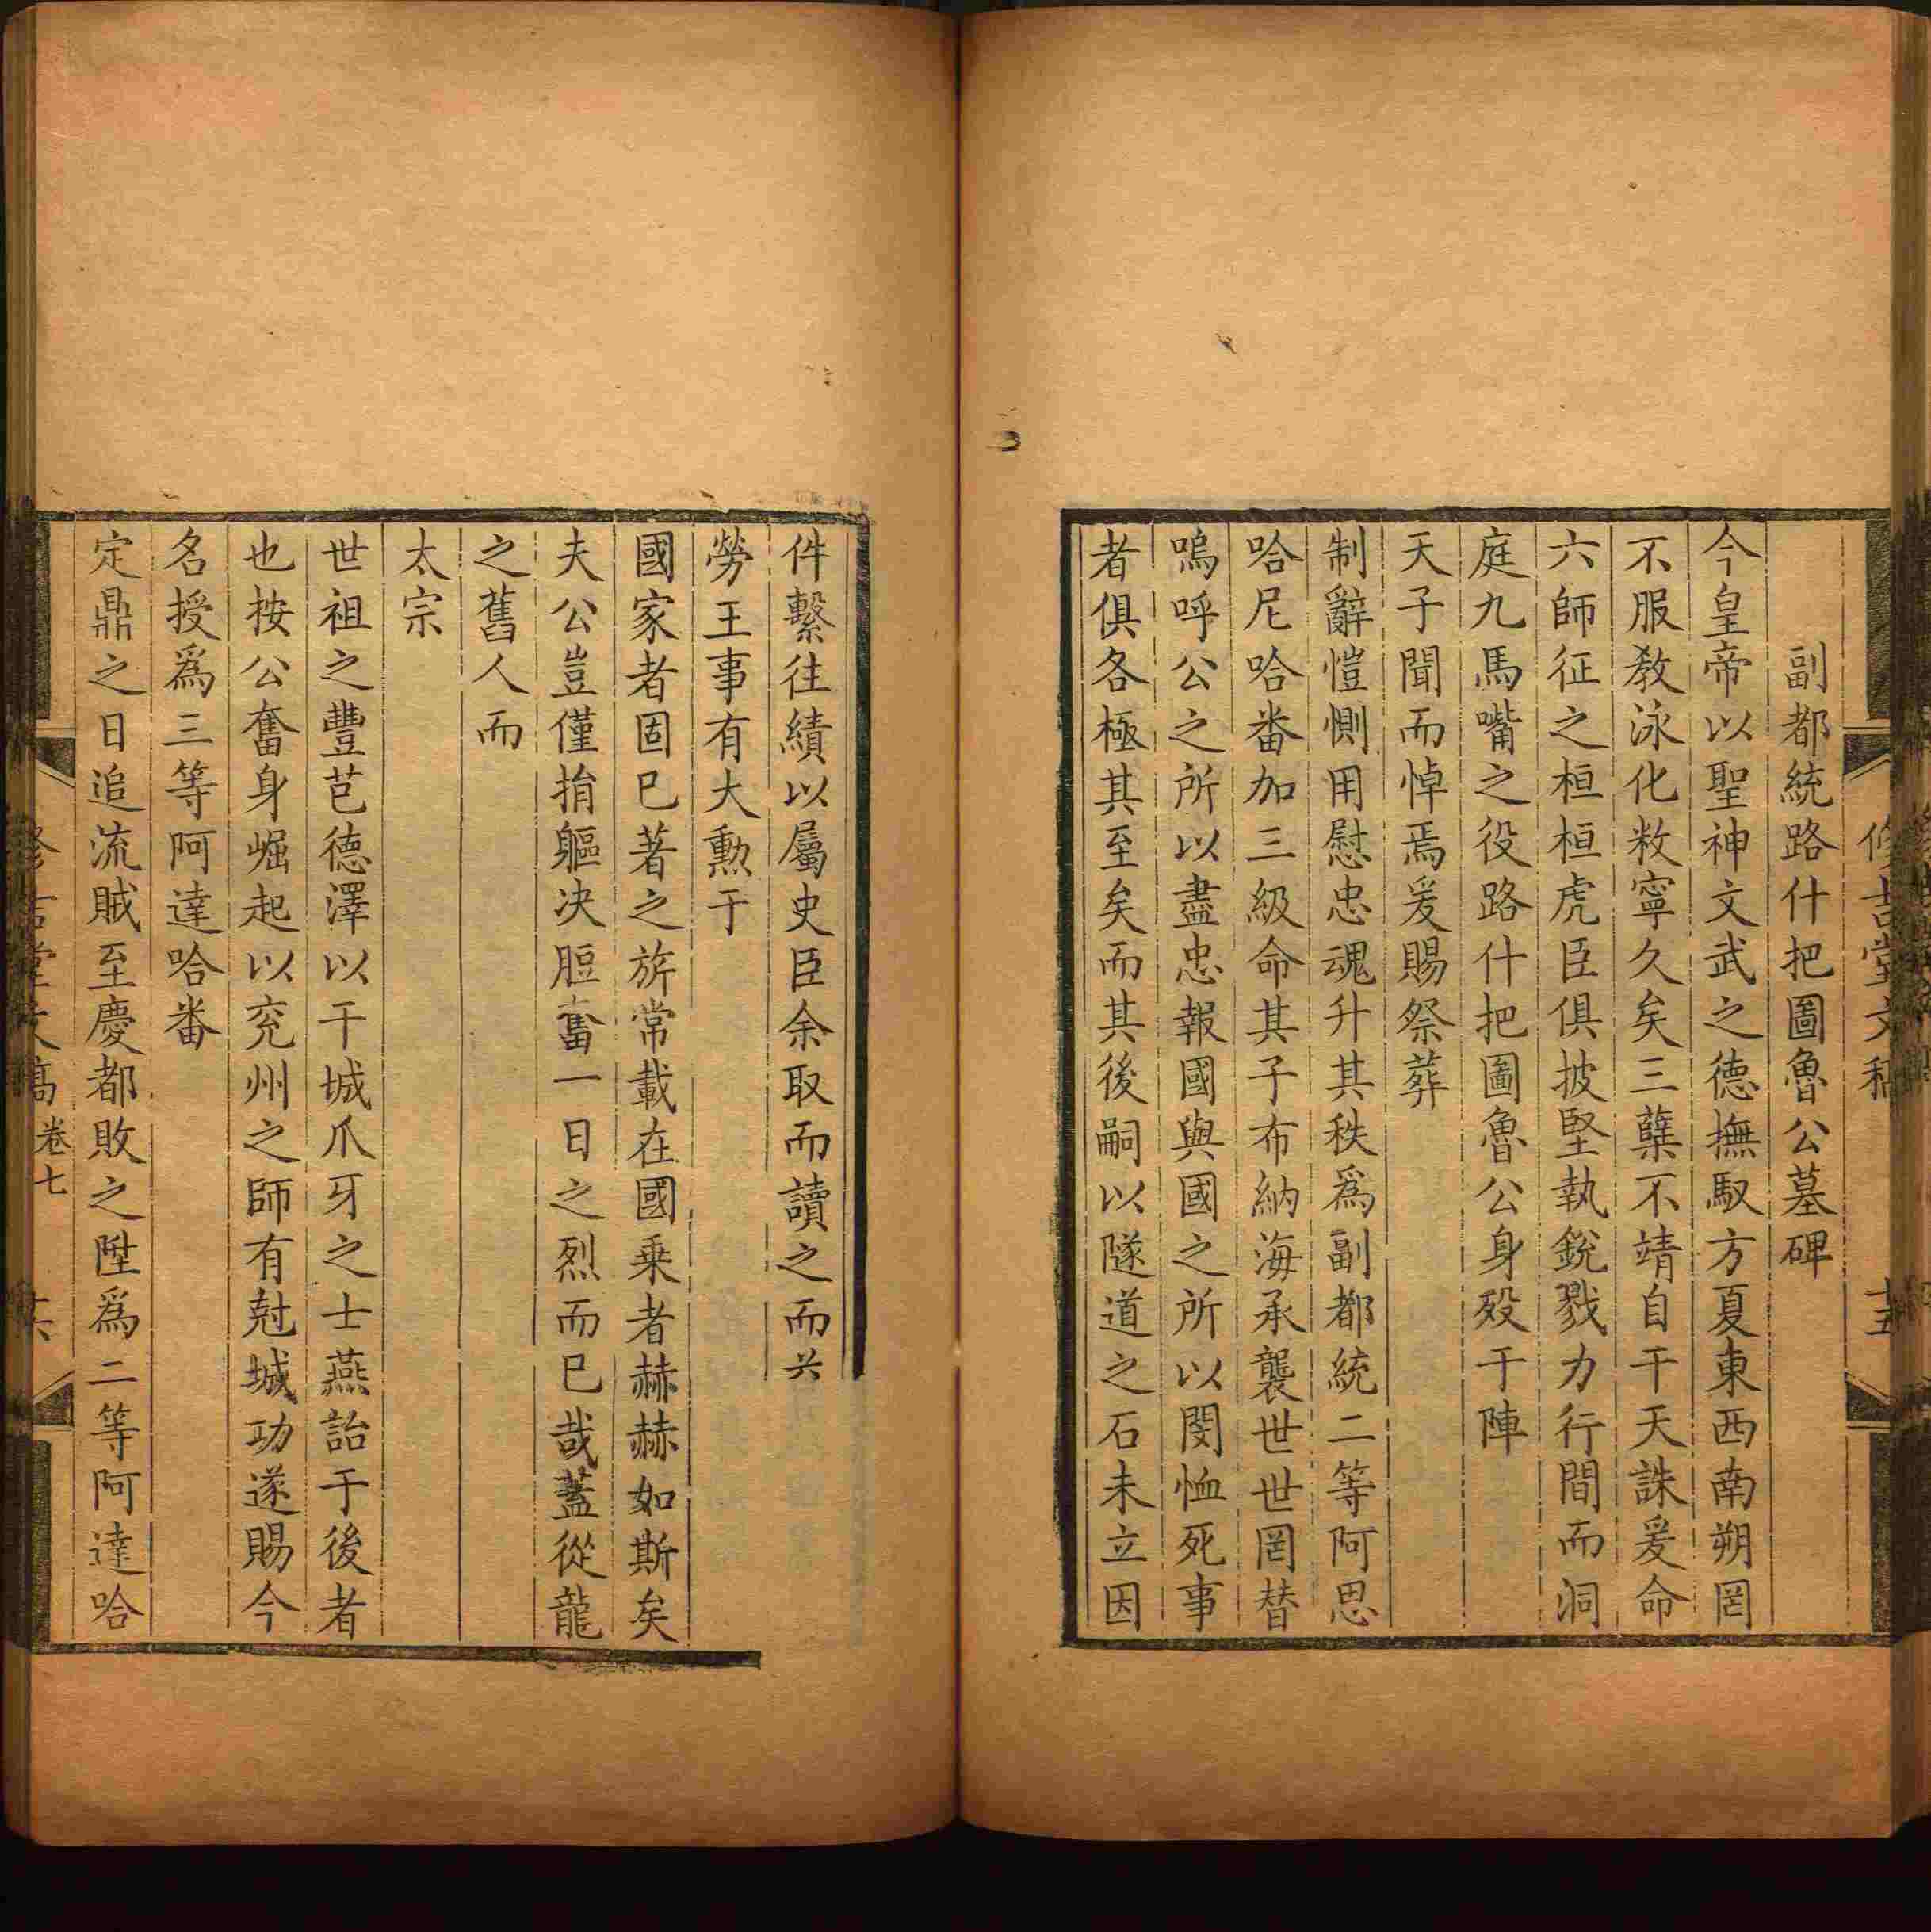 副都統路什把圖魯公墓碑
今皇帝以聖神文武之德撫馭方夏東西南朔罔
不服教泳化敉寧久矣三蘖不靖自干天誅爰命
六師征之桓桓虎臣俱披堅執銳戮力行間而洞
庭九馬嘴之役路什把圖魯公身殁于陣
天子聞而悼焉爰賜祭葬
制辭愷惻用慰忠魂升其秩爲副都統二等阿思
哈尼哈番加三級命其子布納海承襲世世罔替
嗚呼公之所以盡忠報國與國之所以閔恤死事
者俱各極其至矣而其後嗣以隧道之石未立因
件繫往績以屬史臣余取而讀之而
勞王事有大勲于
國家者固已著之旂常載在國乗者赫赫如斯矣
夫公豈僅捐軀决脰奮一日之烈而已哉蓋從龍
之舊人而
太宗
世祖之豐芑德澤以干城爪牙之士燕詒于後者
也按公奮身崛起以兖州之師有尅城功遂賜今
名授爲三等阿達哈番
定鼎之日追流賊至慶都敗之陞爲二等阿達哈
卷七